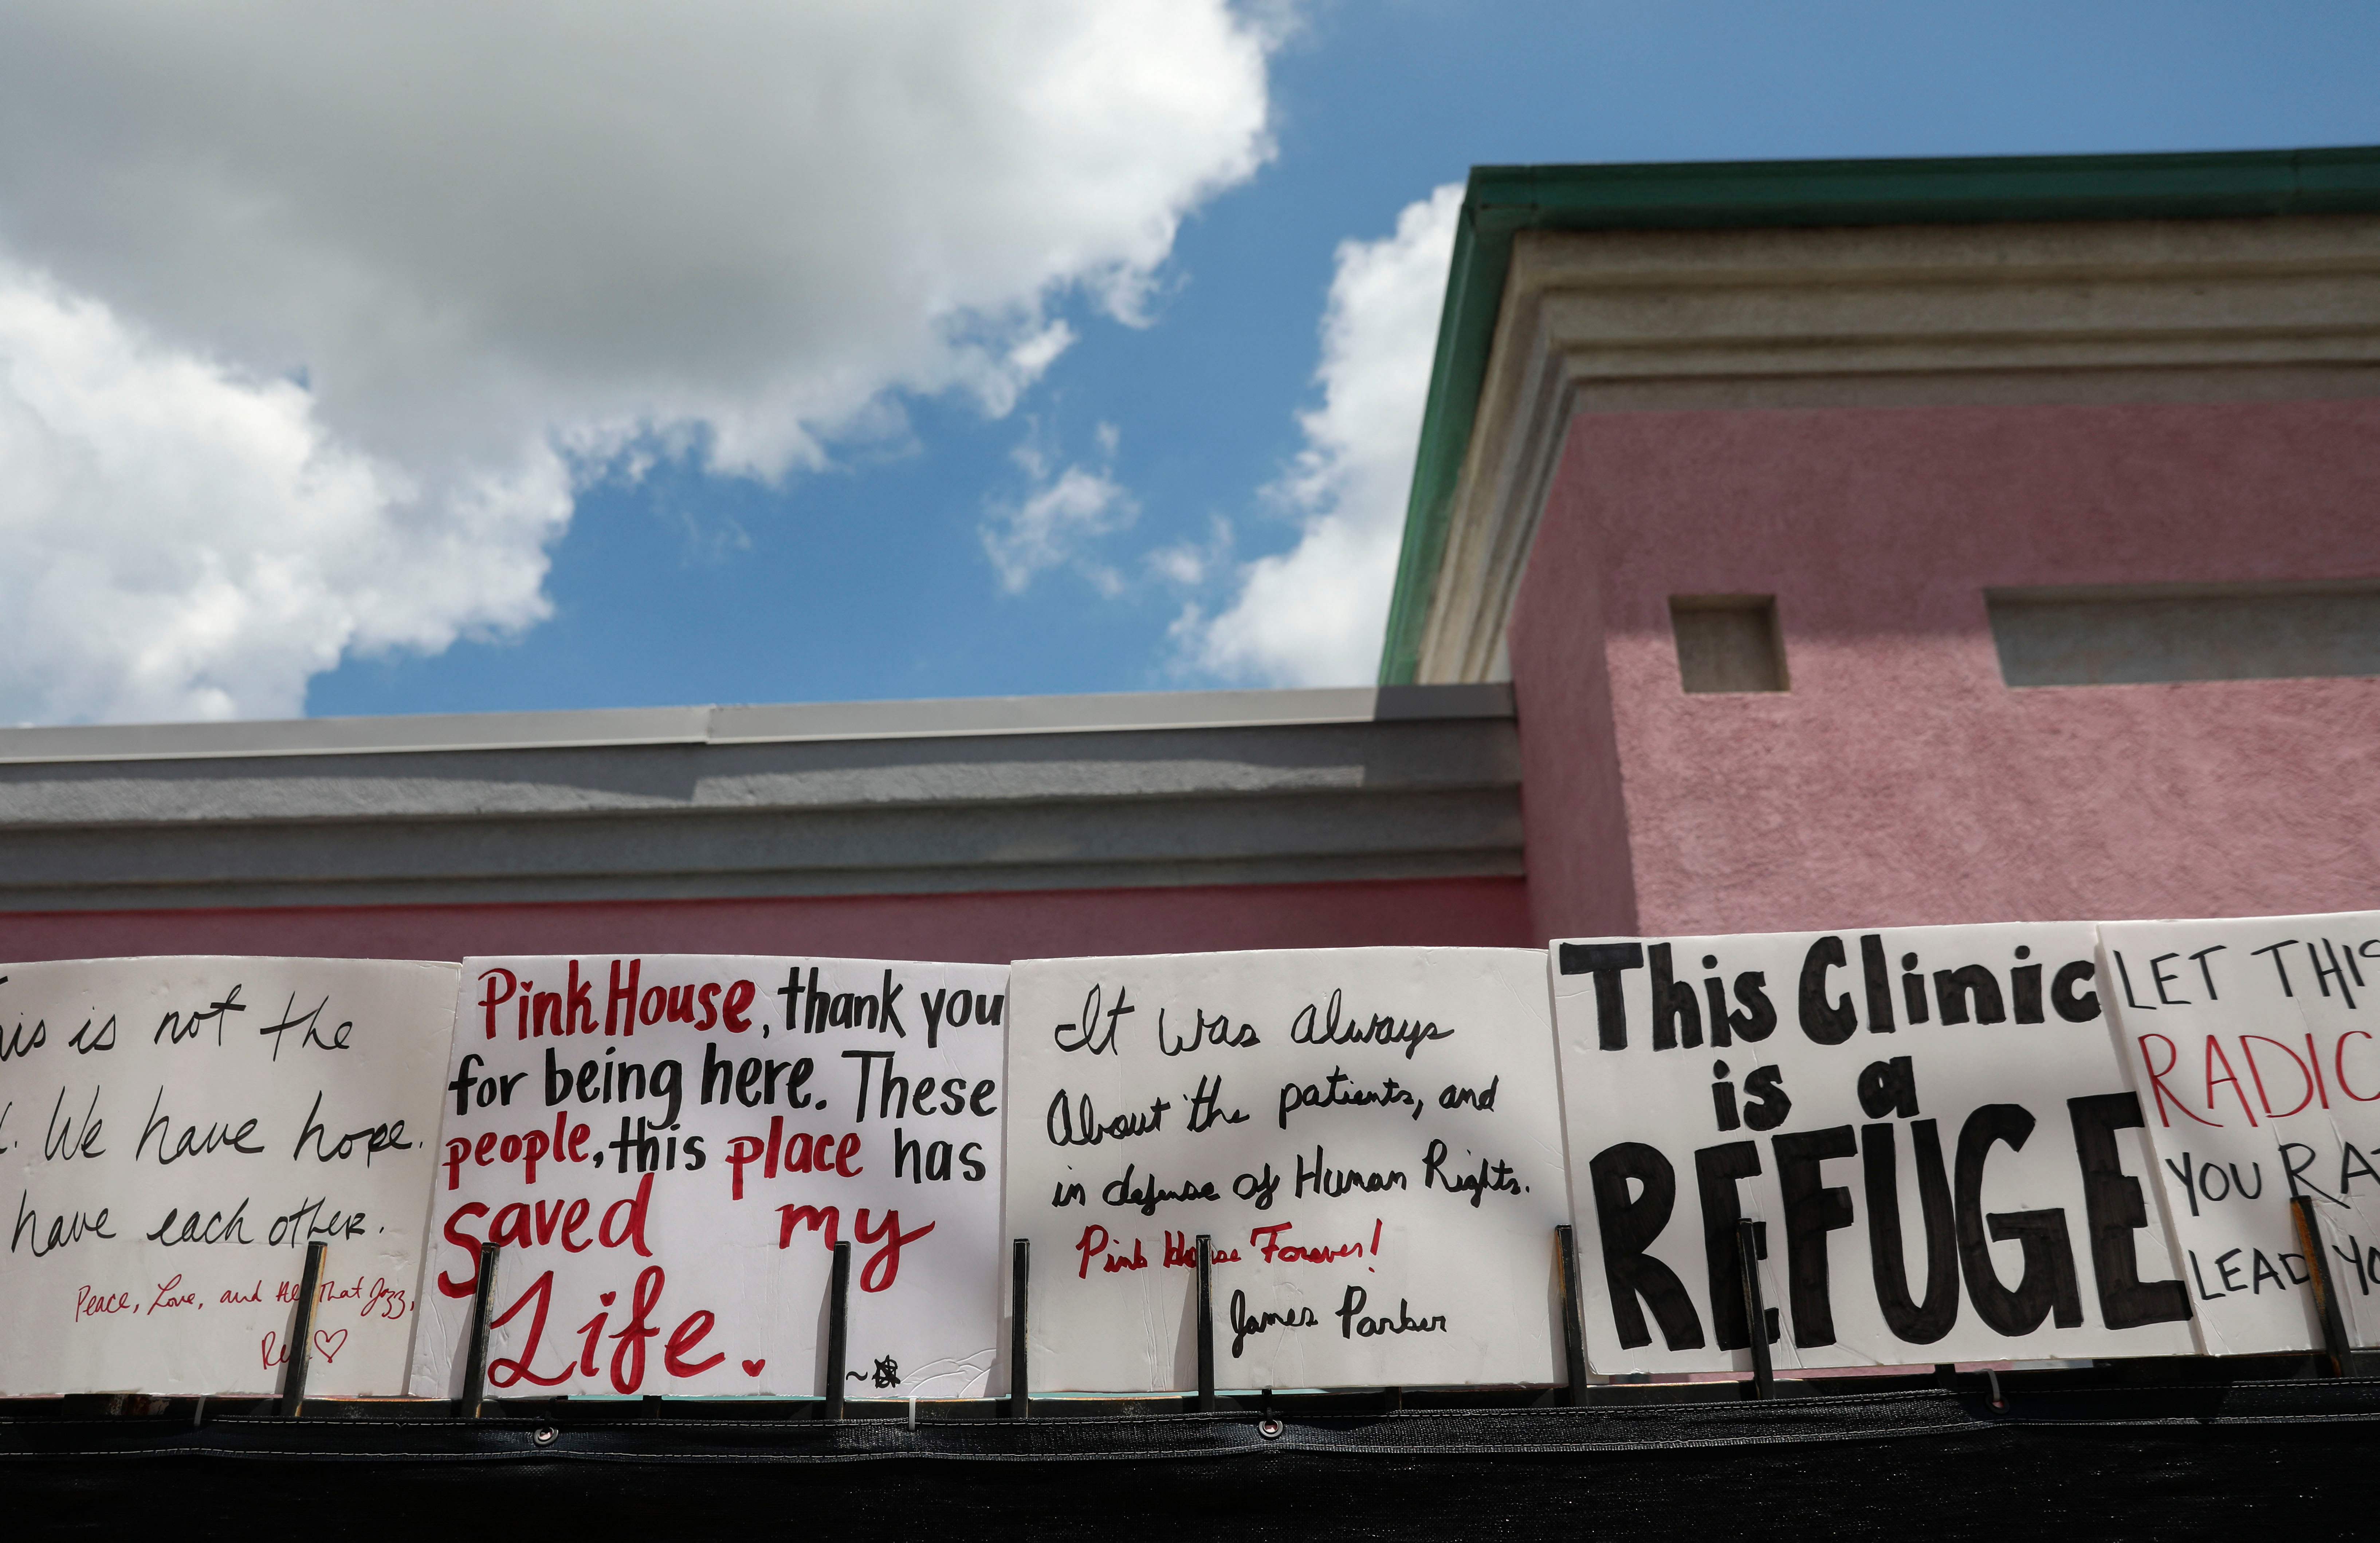 is is not the
We have hope.
have each other.
Peace, Love, and All That Jazz,
Pink House, thank you
for being here. These
people, this place has
saved my
Life.
It was always
About the patients, and
in defense of Human Rights.
Pink House Forever!
James Parker
This Clinic
is a
REFUGE
LET THIS
RADIC
YOU RA
LEAD YO